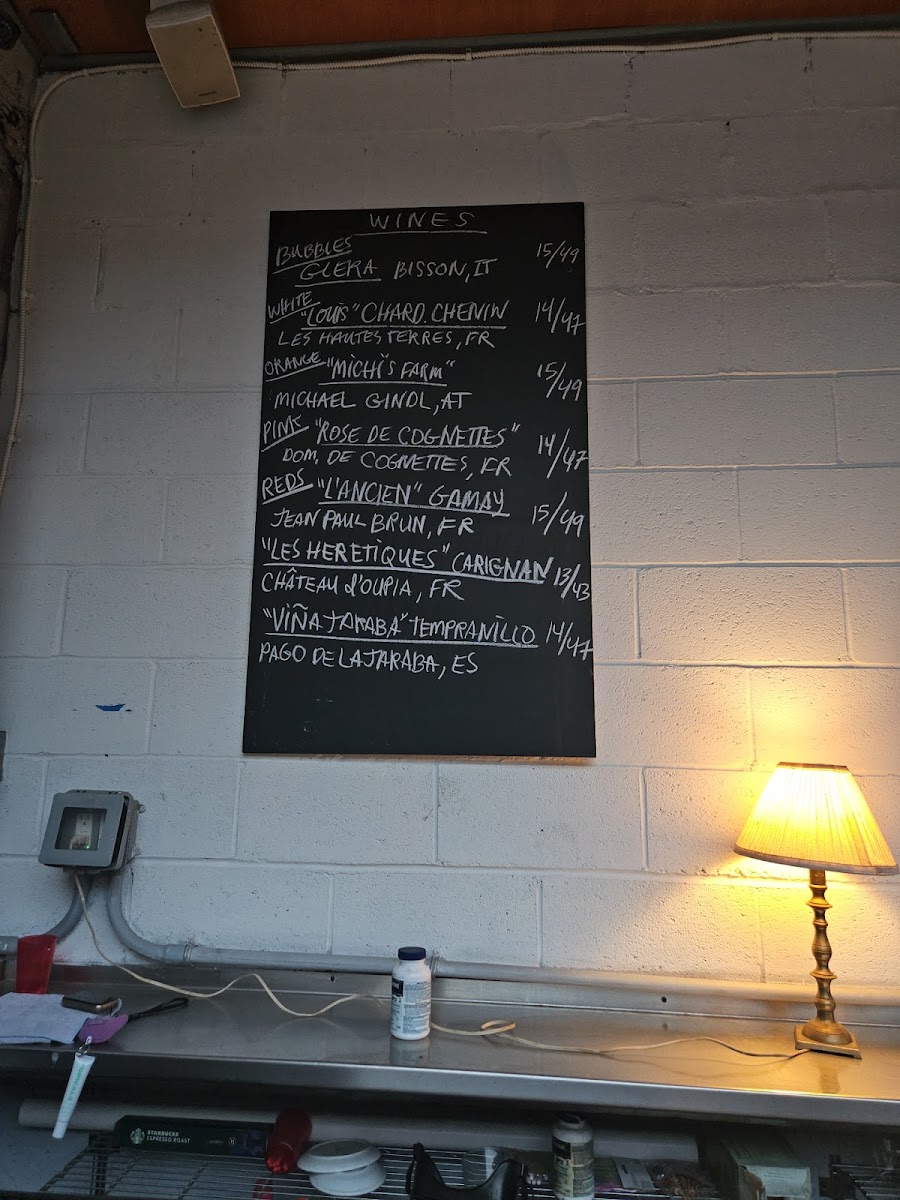 WINES
BUBBLES 15/49
GLERA BISSON, IT
WHITE "LOUIS" CHARD. CHENIN 14/47
LES HAUTES TERRES, FR
ORANGE "MICHI'S FARM" 15/49
MICHAEL GINDL, AT
PINK "ROSE DE COGNETTES" 14/47
DOM. DE COGNETTES, FR
REDS "L'ANCIEN" GAMAY 15/49
JEAN PAUL BRUN, FR
"LES HERETIQUES" CARIGNAN 13/43
CHÂTEAU d'OUPIA, FR
"VIÑA JARABA" TEMPRANILLO 14/47
PAGO DE LA JARABA, ES
STARBUCKS
ESPRESSO ROAST